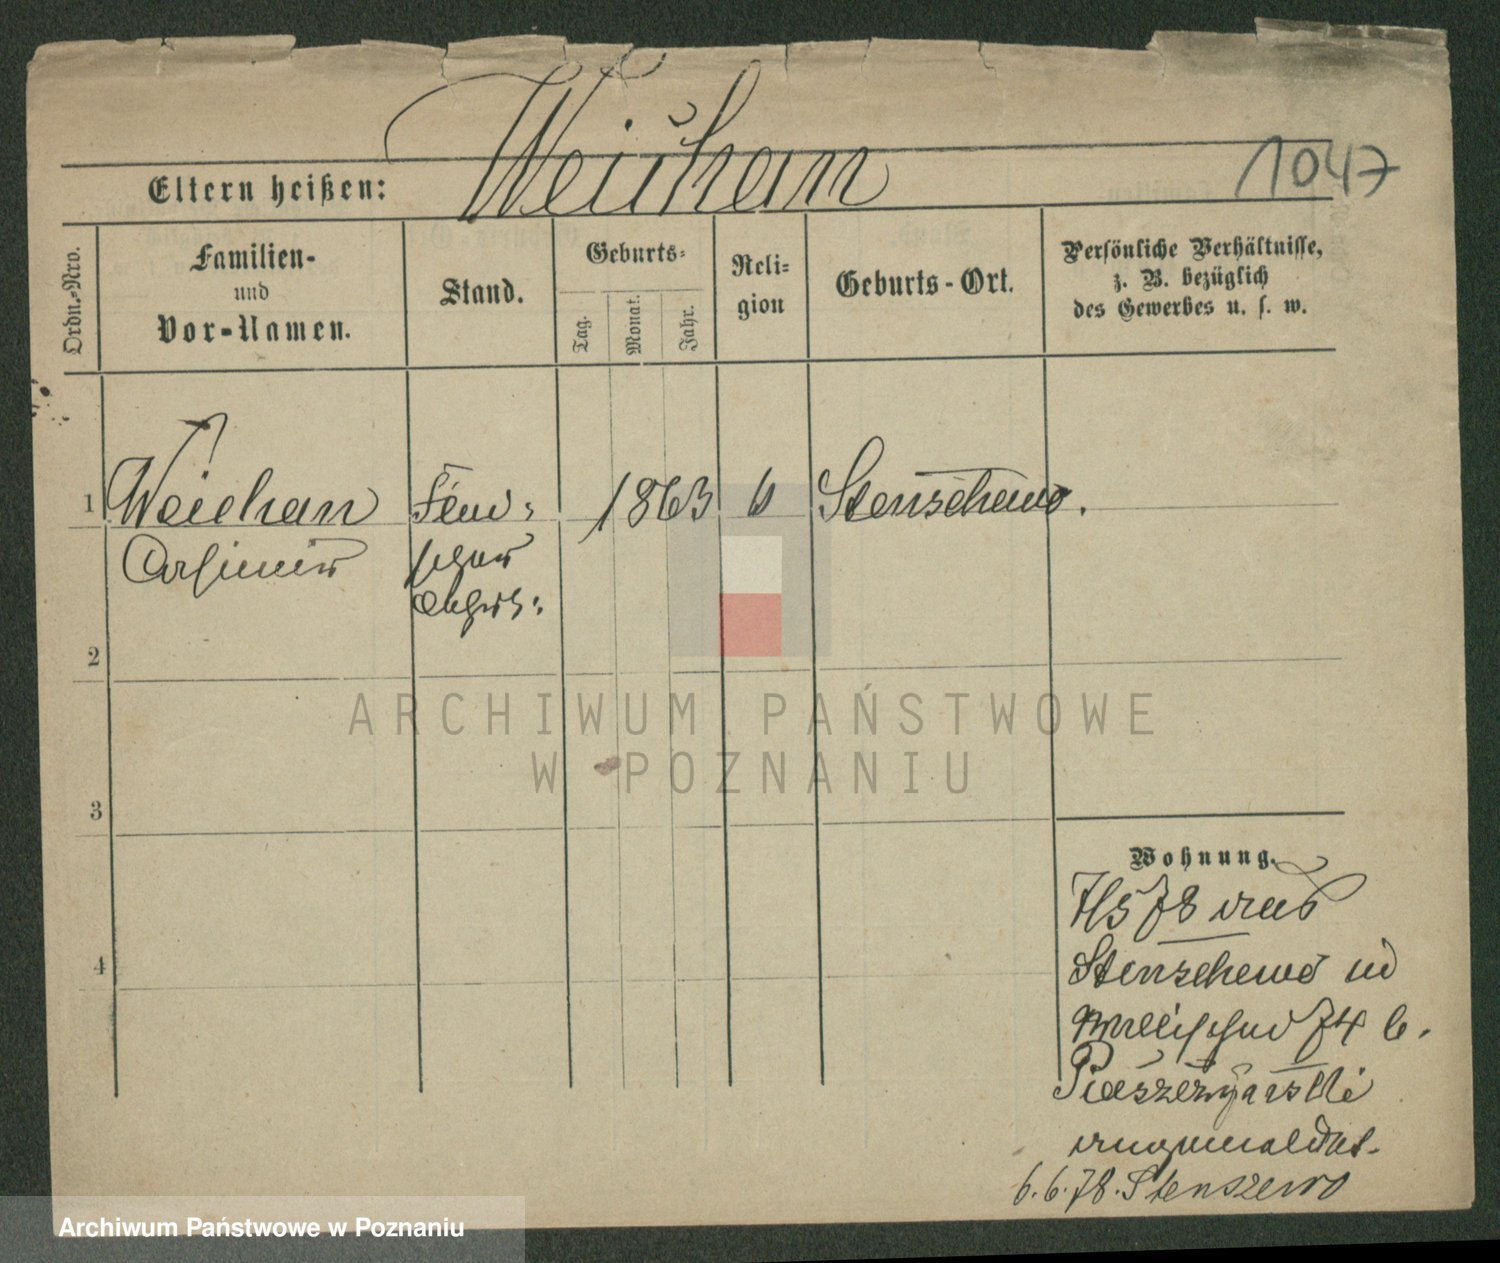 Weichan
1047
Eltern heißen:
Ordn.-Nro.
Familien-
und
Vor-Namen.
Stand.
Geburts-
Tag.
Monat.
Jahr.
Reli-
gion
Geburts-Ort.
Persönliche Verhältnisse,
z. B. bezüglich
des Gewerbes u. s. w.
1
Weichan
Casimir
1863
Stenschewo.
2
3
4
Wohnung.
7/5 78 aus
Stenschewo
74 b.
angemeldet.
6.6.78. Stenszewo
ARCHIWUM PAŃSTWOWE
W POZNANIU
Archiwum Państwowe w Poznaniu